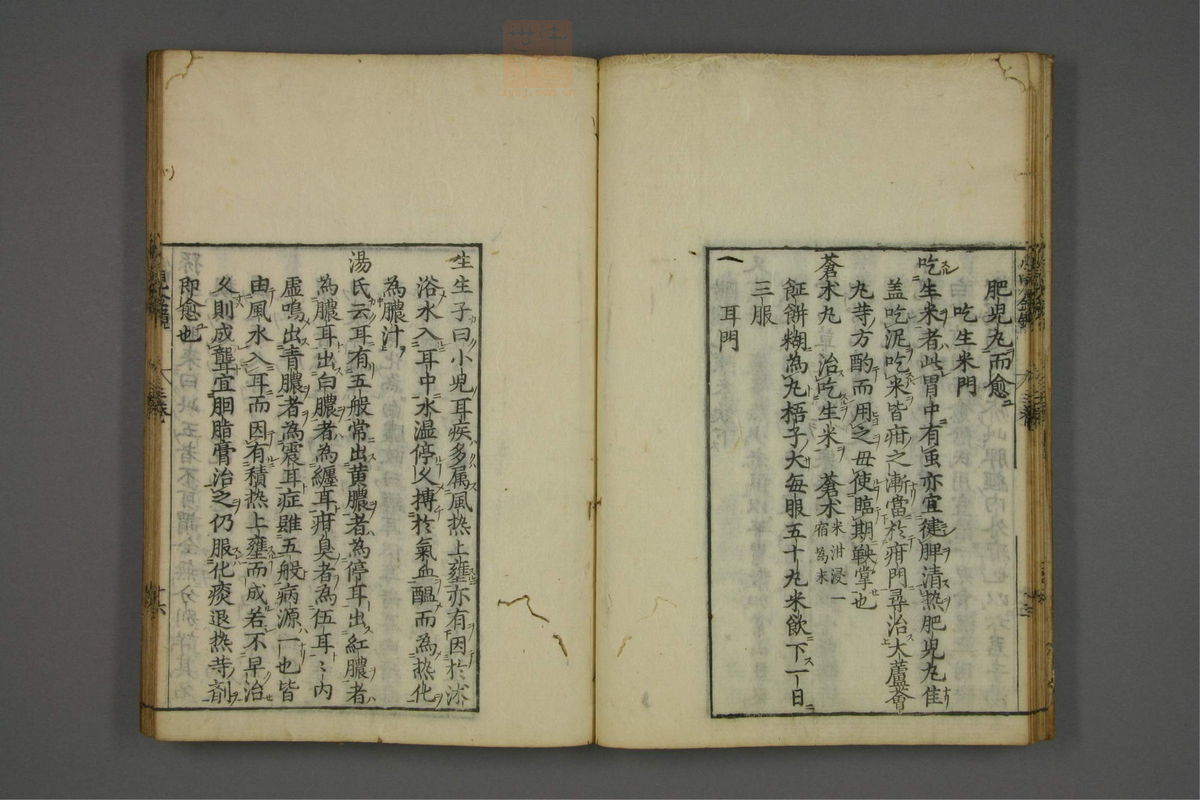 肥兒丸而愈
吃生米門
吃生米者此胃中有虫亦宜健脾清热肥兒丸佳
盖吃泥吃米皆疳之漸當於疳門尋治大蘆薈
丸䓁方酌而用之毋使臨期鞅掌也
蒼术丸 治吃生米 蒼术米泔浸一宿為末
飪餅糊為丸梧子大每服五十丸米飲下一日
三服
一 耳門
生生子曰小兒耳疾多属風热上壅亦有因於沐
浴水入耳中水湿停久搏於氣血醖而為热化
為膿汁
湯氏云耳有五般常出黄膿者為停耳出紅膿者
為膿耳出白膿者為纏耳疳臭者為伍耳〻內
虛鳴出青膿者為震耳症雖五般病源一也皆
由風水入耳而因有積热上壅而成若不早治
久則成聾宜胭脂膏治之仍服化痰退热䓁劑
即愈也